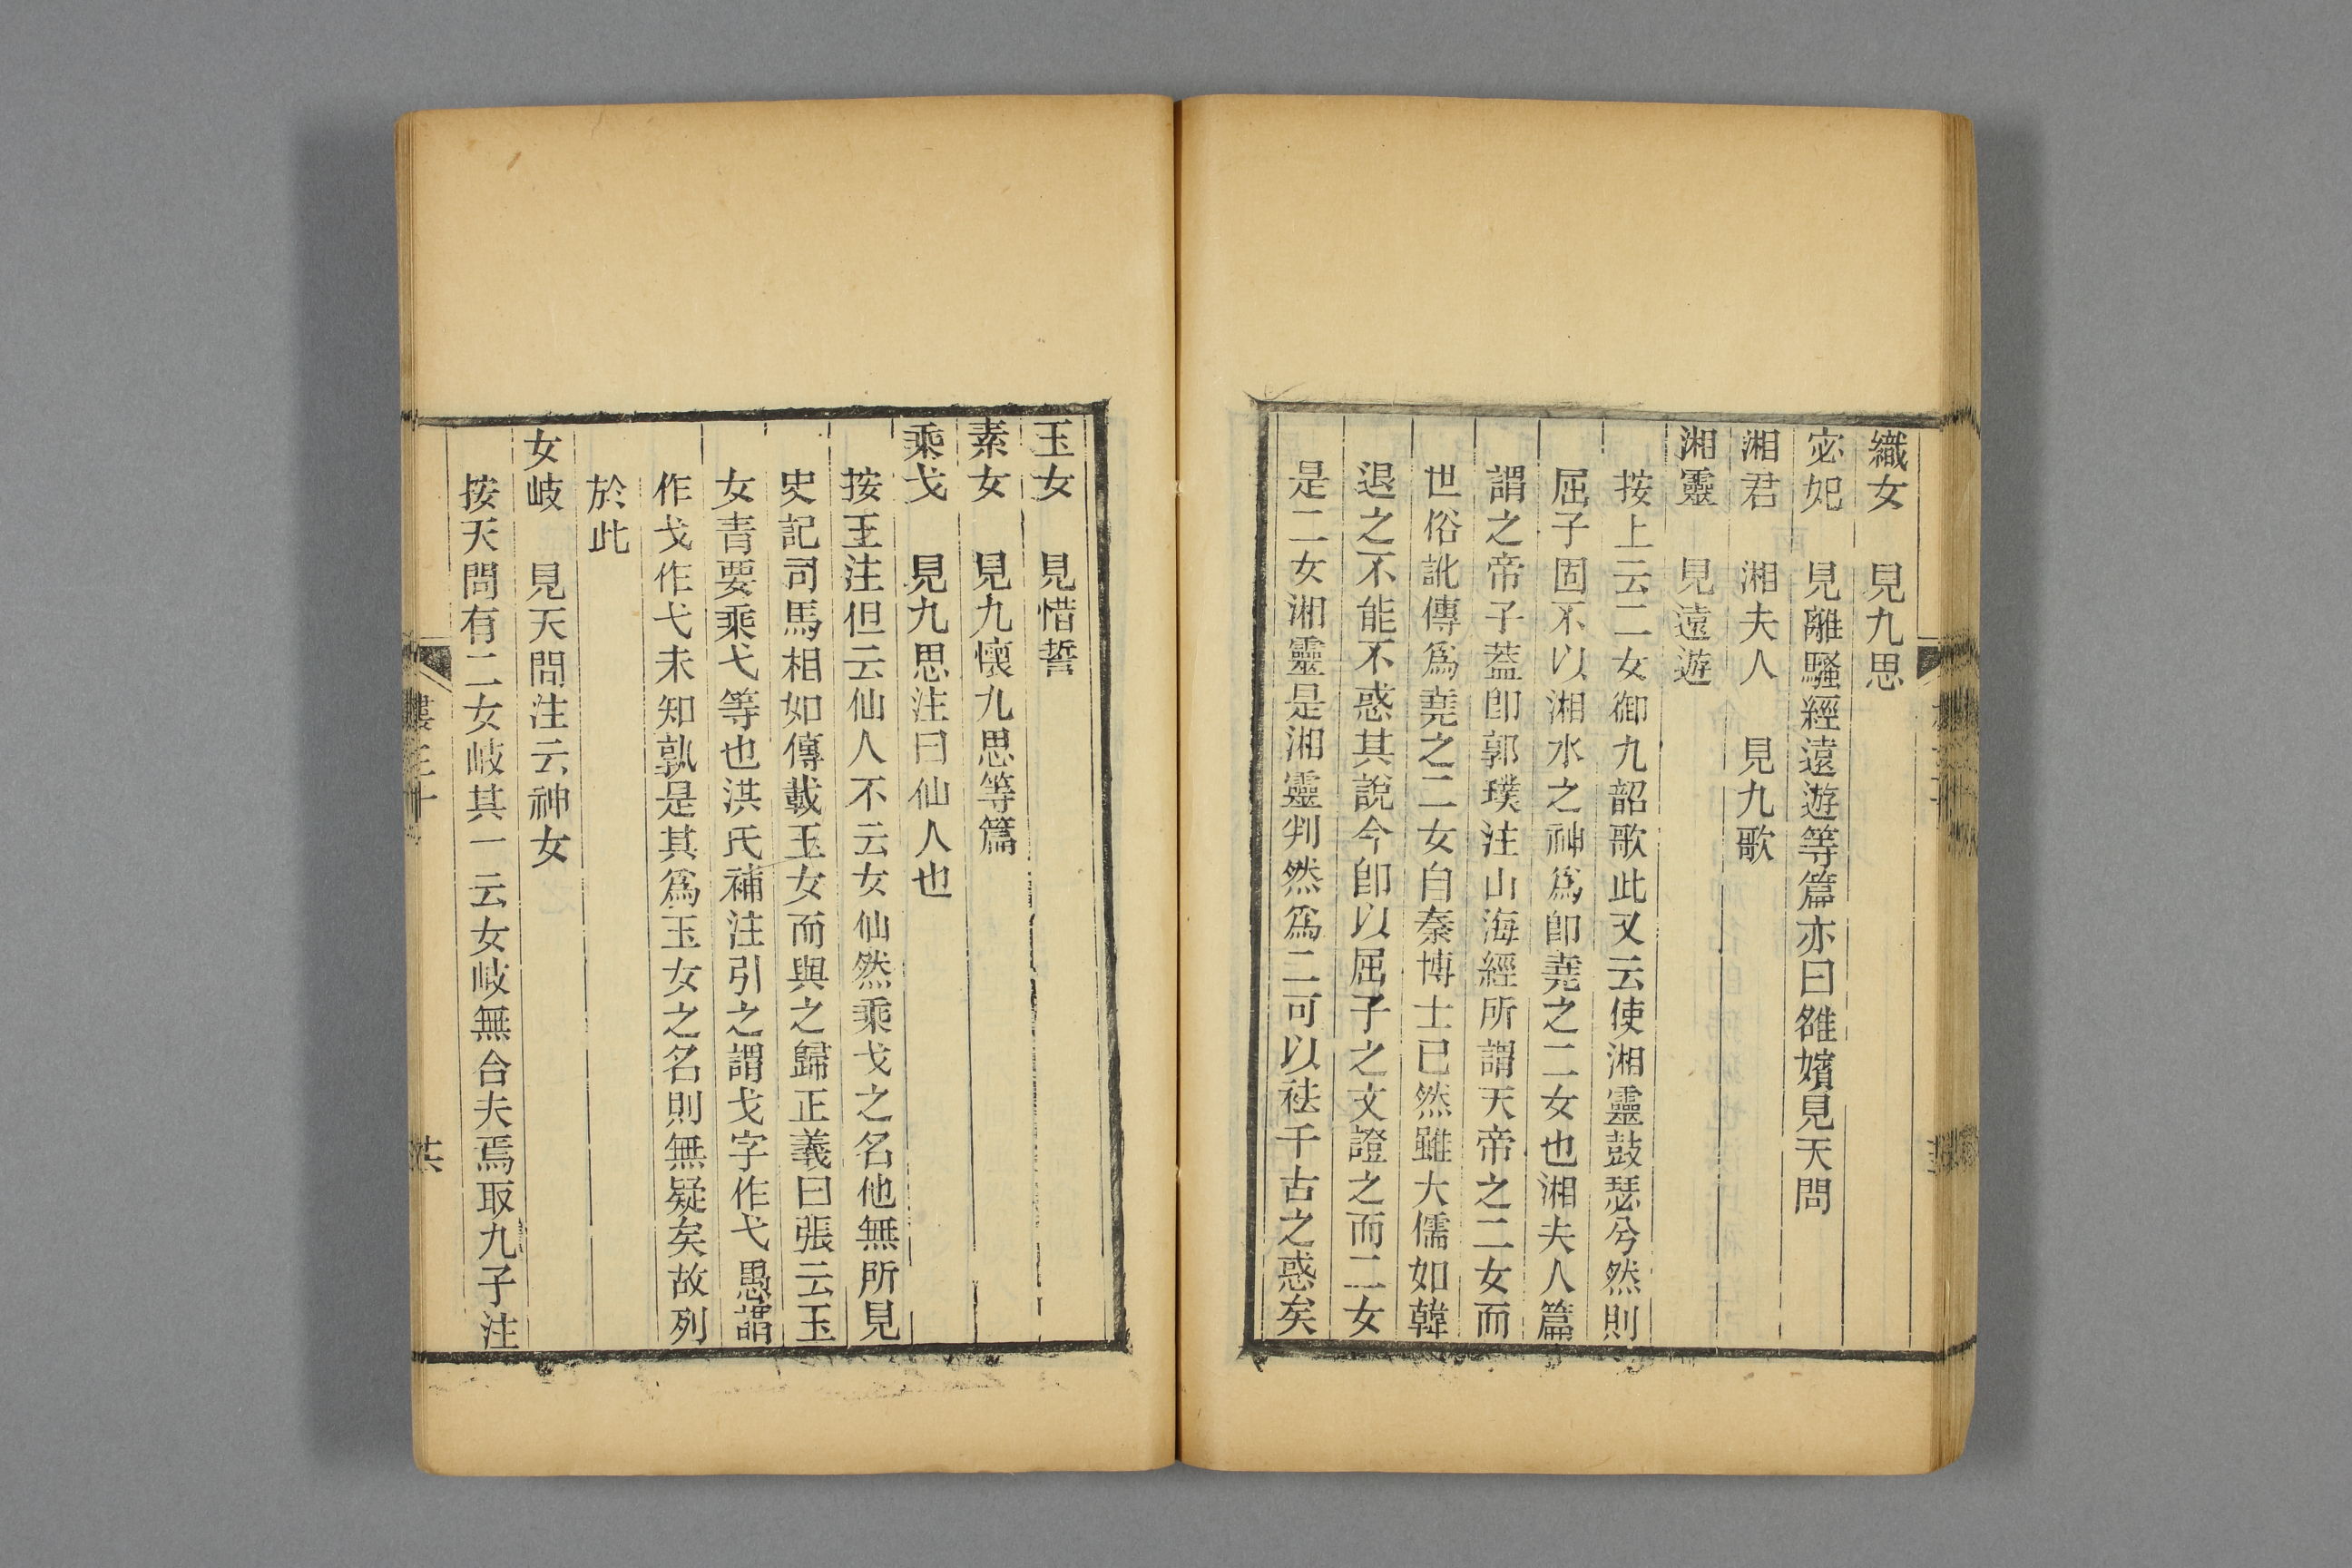 織女　見九思
宓妃　見離騷經遠遊等篇亦曰雒嬪見天問
湘君　湘夫人　見九歌
湘靈　見遠遊
按上云二女御九韶歌此又云使湘靈鼓瑟兮然則
屈子固不以湘水之神爲卽堯之二女也湘夫人篇
謂之帝子葢卽郭璞注山海經所謂天帝之二女而
世俗訛傳爲堯之二女自秦博士已然雖大儒如韓
退之不能不惑其說今卽以屈子之文證之而二女
是二女湘靈是湘靈判然爲二可以祛千古之惑矣
玉女　見惜誓
素女　見九懷九思等篇
乘戈　見九思注曰仙人也
按王注但云仙人不云女仙然乘戈之名他無所見
史記司馬相如傳載玉女而與之歸正義曰張云玉
女青要乘弋等也洪氏補注引之謂戈字作弋愚謂
作戈作弋未知孰是其爲玉女之名則無疑矣故列
於此
女岐　見天問注云神女
按天問有二女岐其一云女岐無合夫焉取九子注